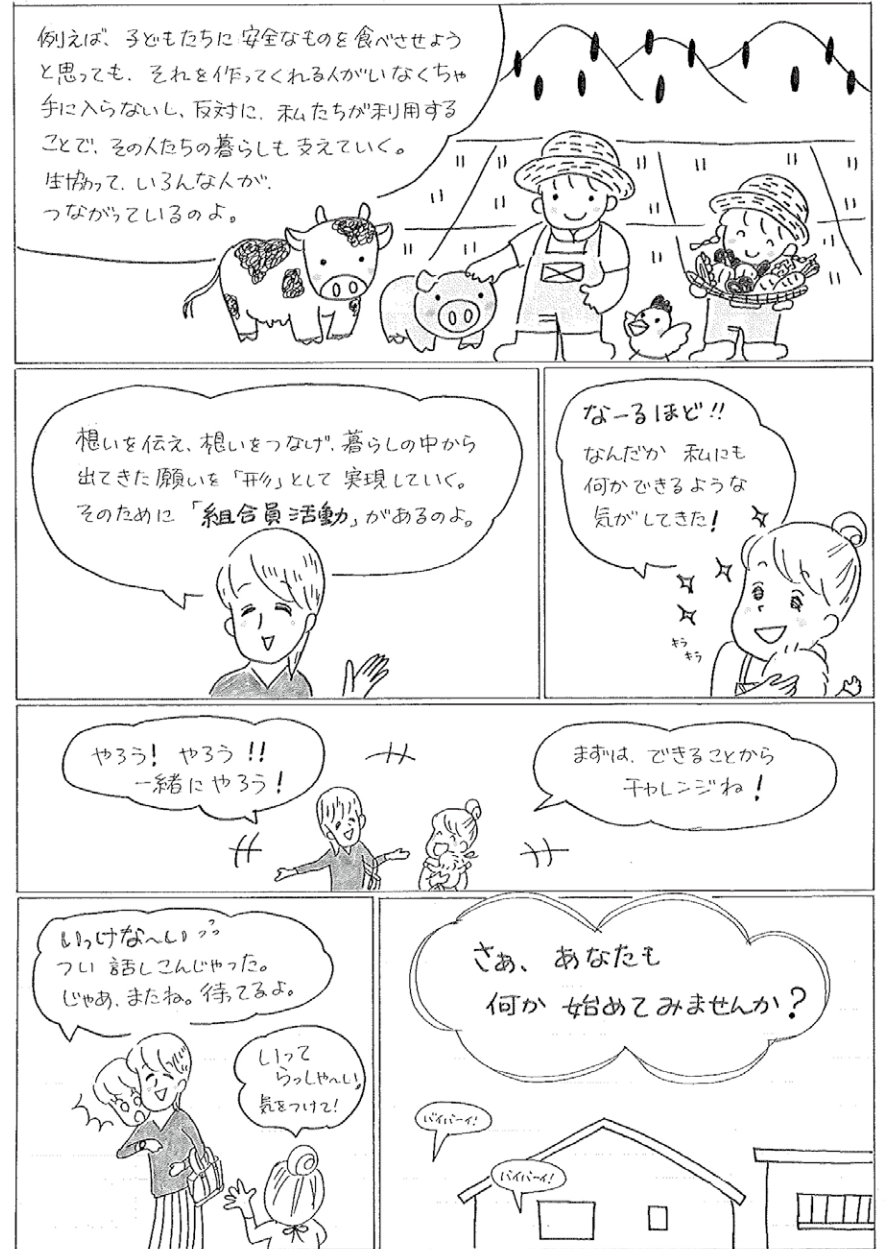 例えば、子どもたちに安全なものを食べさせよう
と思っても、それを作ってくれる人がいなくちゃ
手に入らないし、反対に、私たちが利用する
ことで、その人たちの暮らしも支えていく。
生協って、いろんな人が、
つながっているのよ。
想いを伝え、想いをつなげ、暮らしの中から
出てきた願いを「形」として実現していく。
そのために「組合員活動」があるのよ。
なーるほど!!
なんだか 私にも
何かできるような
気がしてきた!
キラ
キラ
やろう! やろう!!
一緒にやろう!
まずは、できることから
チャレンジね!
いっけな〜い
つい 話しこんじゃった。
じゃあ、またね。待ってるよ。
いって
らっしゃ〜い。
気をつけて!
さぁ、あなたも
何か 始めてみませんか?
バイバーイ!
バイバーイ!